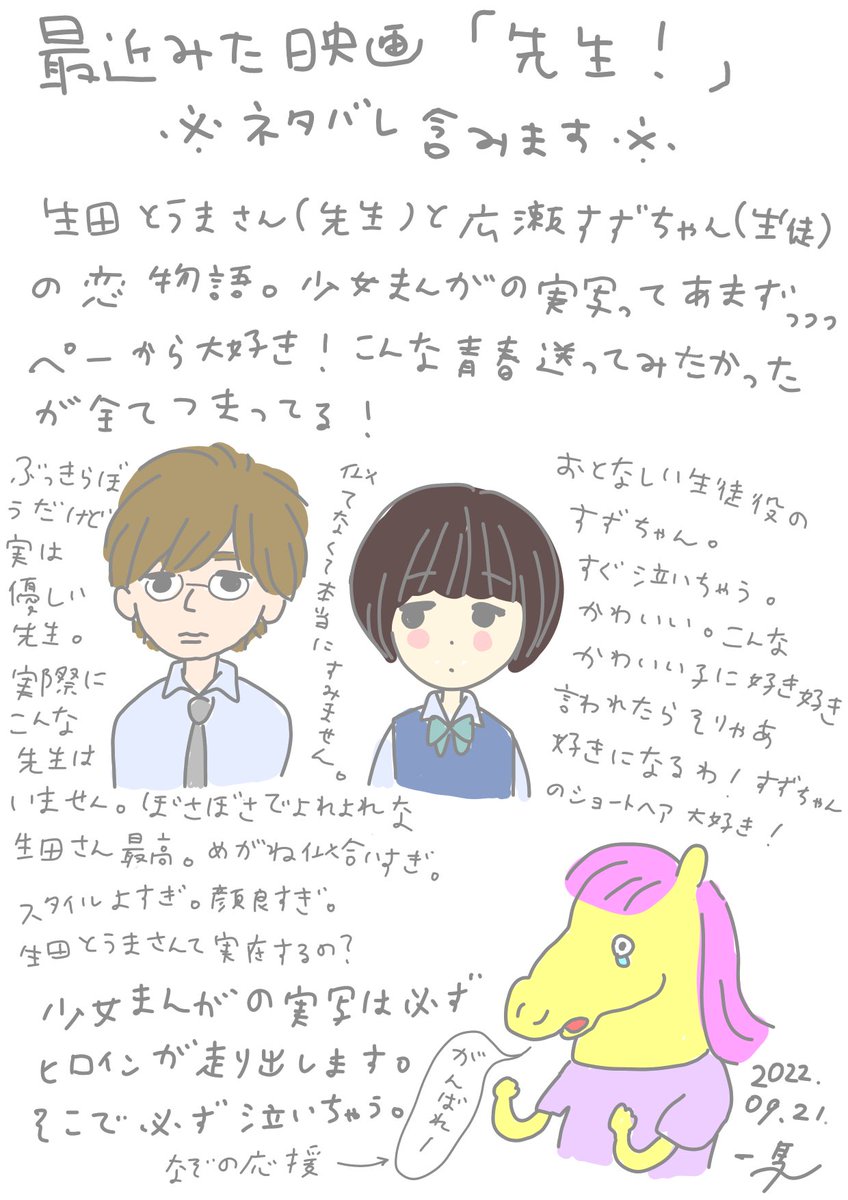 最近みた映画「先生！」
※ネタバレ含みます※
生田とうまさん(先生)と広瀬すずちゃん(生徒)
の恋物語。少女まんがの実写ってあまずっっっ
ぺーから大好き！こんな青春送ってみたかった
が全てつまってる！
ぶっきらぼ
うだけど
実は
優しい
先生。
実際に
こんな
先生は
いません。ぼさぼさでよれよれな
生田さん最高。めがね似合いすぎ。
スタイルよすぎ。顔良すぎ。
生田とうまさんて実在するの？
似てなくて本当にすみません。
おとなしい生徒役の
すずちゃん。
すぐ泣いちゃう。
かわいい。こんな
かわいい子に好き好き
言われたらそりゃあ
好きになるわ！すずちゃん
のショートヘア大好き！
少女まんがの実写は必ず
ヒロインが走り出します。
そこで必ず泣いちゃう。
なぞの応援→
がんばれー
2022.
09.21.
一馬